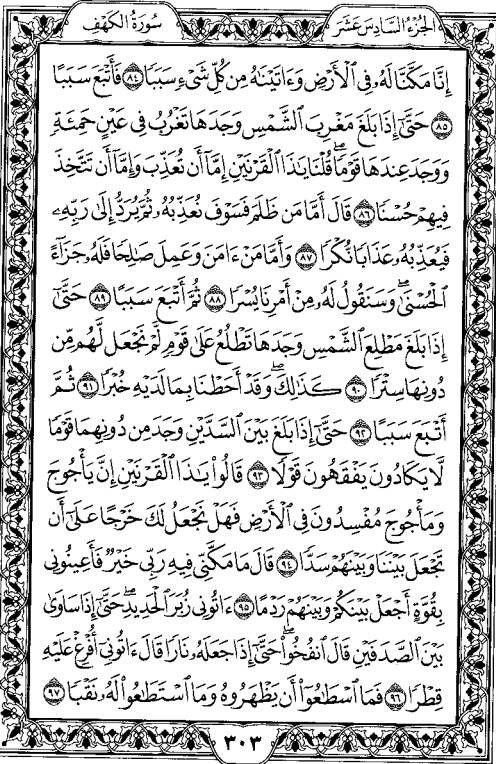 الجُزْءُ السَّادِسَ عَشَرَ
سُورَةُ الكَهْفِ
إِنَّا مَكَّنَّا لَهُۥ فِى ٱلْأَرْضِ وَءَاتَيْنَٰهُ مِن كُلِّ شَىْءٍ سَبَبًا ٨٤ فَأَتْبَعَ سَبَبًا
٨٥ حَتَّىٰٓ إِذَا بَلَغَ مَغْرِبَ ٱلشَّمْسِ وَجَدَهَا تَغْرُبُ فِى عَيْنٍ حَمِئَةٍ
وَوَجَدَ عِندَهَا قَوْمًاۗ قُلْنَا يَٰذَا ٱلْقَرْنَيْنِ إِمَّآ أَن تُعَذِّبَ وَإِمَّآ أَن تَتَّخِذَ
فِيهِمْ حُسْنًا ٨٦ قَالَ أَمَّا مَن ظَلَمَ فَسَوْفَ نُعَذِّبُهُۥ ثُمَّ يُرَدُّ إِلَىٰ رَبِّهِۦ
فَيُعَذِّبُهُۥ عَذَابًا نُّكْرًا ٨٧ وَأَمَّا مَنْ ءَامَنَ وَعَمِلَ صَٰلِحًا فَلَهُۥ جَزَآءً
ٱلْحُسْنَىٰۖ وَسَنَقُولُ لَهُۥ مِنْ أَمْرِنَا يُسْرًا ٨٨ ثُمَّ أَتْبَعَ سَبَبًا ٨٩ حَتَّىٰٓ
إِذَا بَلَغَ مَطْلِعَ ٱلشَّمْسِ وَجَدَهَا تَطْلُعُ عَلَىٰ قَوْمٍ لَّمْ نَجْعَل لَّهُم مِّن
دُونِهَا سِتْرًا ٩٠ كَذَٰلِكَۖ وَقَدْ أَحَطْنَا بِمَا لَدَيْهِ خُبْرًا ٩١ ثُمَّ
أَتْبَعَ سَبَبًا ٩٢ حَتَّىٰٓ إِذَا بَلَغَ بَيْنَ ٱلسَّدَّيْنِ وَجَدَ مِن دُونِهِمَا قَوْمًا
لَّا يَكَادُونَ يَفْقَهُونَ قَوْلًا ٩٣ قَالُوا۟ يَٰذَا ٱلْقَرْنَيْنِ إِنَّ يَأْجُوجَ
وَمَأْجُوجَ مُفْسِدُونَ فِى ٱلْأَرْضِ فَهَلْ نَجْعَلُ لَكَ خَرْجًا عَلَىٰٓ أَن
تَجْعَلَ بَيْنَنَا وَبَيْنَهُمْ سَدًّا ٩٤ قَالَ مَا مَكَّنِّى فِيهِ رَبِّى خَيْرٌ فَأَعِينُونِى
بِقُوَّةٍ أَجْعَلْ بَيْنَكُمْ وَبَيْنَهُمْ رَدْمًا ٩٥ ءَاتُونِى زُبَرَ ٱلْحَدِيدِۖ حَتَّىٰٓ إِذَا سَاوَىٰ
بَيْنَ ٱلصَّدَفَيْنِ قَالَ ٱنفُخُوا۟ۖ حَتَّىٰٓ إِذَا جَعَلَهُۥ نَارًا قَالَ ءَاتُونِىٓ أُفْرِغْ عَلَيْهِ
قِطْرًا ٩٦ فَمَا ٱسْطَٰعُوٓا۟ أَن يَظْهَرُوهُ وَمَا ٱسْتَطَٰعُوا۟ لَهُۥ نَقْبًا ٩٧
٣٠٣